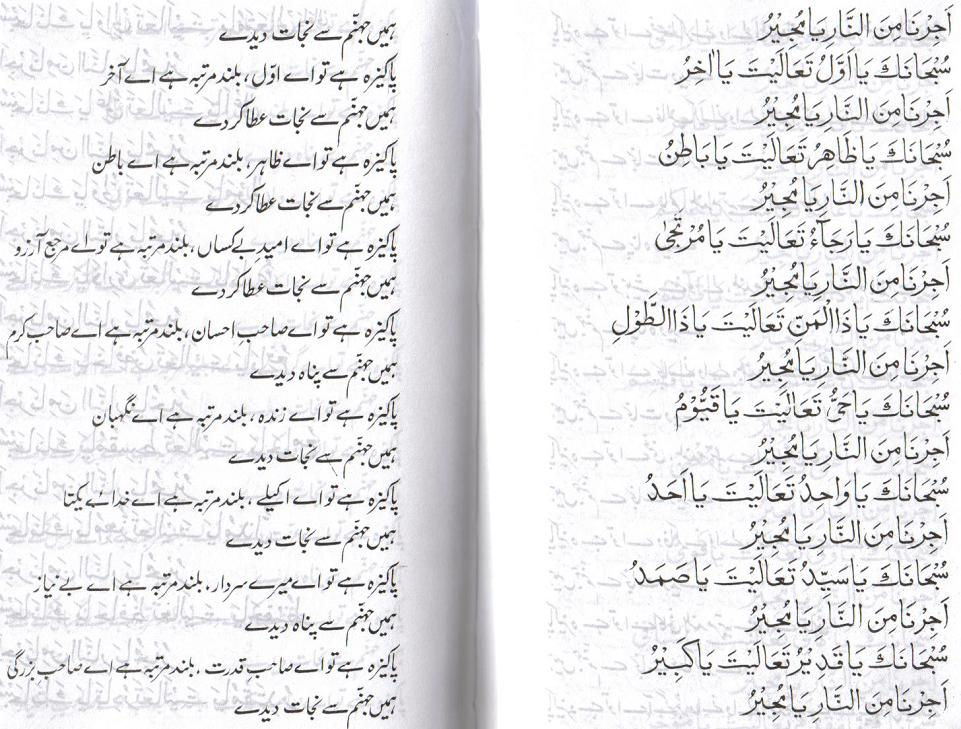 اَجِرْنَا مِنَ النَّارِ يَا مُجِيْرُ
سُبْحَانَكَ يَا اَوَّلُ تَعَالَيْتَ يَا اٰخِرُ
اَجِرْنَا مِنَ النَّارِ يَا مُجِيْرُ
سُبْحَانَكَ يَا ظَاهِرُ تَعَالَيْتَ يَا بَاطِنُ
اَجِرْنَا مِنَ النَّارِ يَا مُجِيْرُ
سُبْحَانَكَ يَا رَجَآءُ تَعَالَيْتَ يَا مُرْتَجٰى
اَجِرْنَا مِنَ النَّارِ يَا مُجِيْرُ
سُبْحَانَكَ يَا ذَا الْمَنِّ تَعَالَيْتَ يَا ذَا الطَّوْلِ
اَجِرْنَا مِنَ النَّارِ يَا مُجِيْرُ
سُبْحَانَكَ يَا حَىُّ تَعَالَيْتَ يَا قَيُّوْمُ
اَجِرْنَا مِنَ النَّارِ يَا مُجِيْرُ
سُبْحَانَكَ يَا وَاحِدُ تَعَالَيْتَ يَا اَحَدُ
اَجِرْنَا مِنَ النَّارِ يَا مُجِيْرُ
سُبْحَانَكَ يَا سَيِّدُ تَعَالَيْتَ يَا صَمَدُ
اَجِرْنَا مِنَ النَّارِ يَا مُجِيْرُ
سُبْحَانَكَ يَا قَدِيْرُ تَعَالَيْتَ يَا كَبِيْرُ
اَجِرْنَا مِنَ النَّارِ يَا مُجِيْرُ
ہمیں جہنّم سے نجات دیدے
پاکیزہ ہے تو اے اوّل، بلند مرتبہ ہے اے آخر
ہمیں جہنّم سے نجات عطا کر دے
پاکیزہ ہے تو اے ظاہر، بلند مرتبہ ہے اے باطن
ہمیں جہنّم سے نجات عطا کر دے
پاکیزہ ہے تو اے امیدِ بےکساں، بلند مرتبہ ہے تو اے مرجع آرزو
ہمیں جہنّم سے نجات عطا کر دے
پاکیزہ ہے تو اے صاحب احسان، بلند مرتبہ ہے اے صاحب کرم
ہمیں جہنّم سے پناہ دیدے
پاکیزہ ہے تو اے زندہ، بلند مرتبہ ہے اے نگہبان
ہمیں جہنّم سے نجات دیدے
پاکیزہ ہے تو اے اکیلے، بلند مرتبہ ہے اے خدائے یکتا
ہمیں جہنّم سے نجات دیدے
پاکیزہ ہے تو اے میرے سردار، بلند مرتبہ ہے اے بے نیاز
ہمیں جہنّم سے پناہ دیدے
پاکیزہ ہے تو اے صاحب قدرت، بلند مرتبہ ہے اے صاحب بزرگی
ہمیں جہنّم سے نجات دیدے